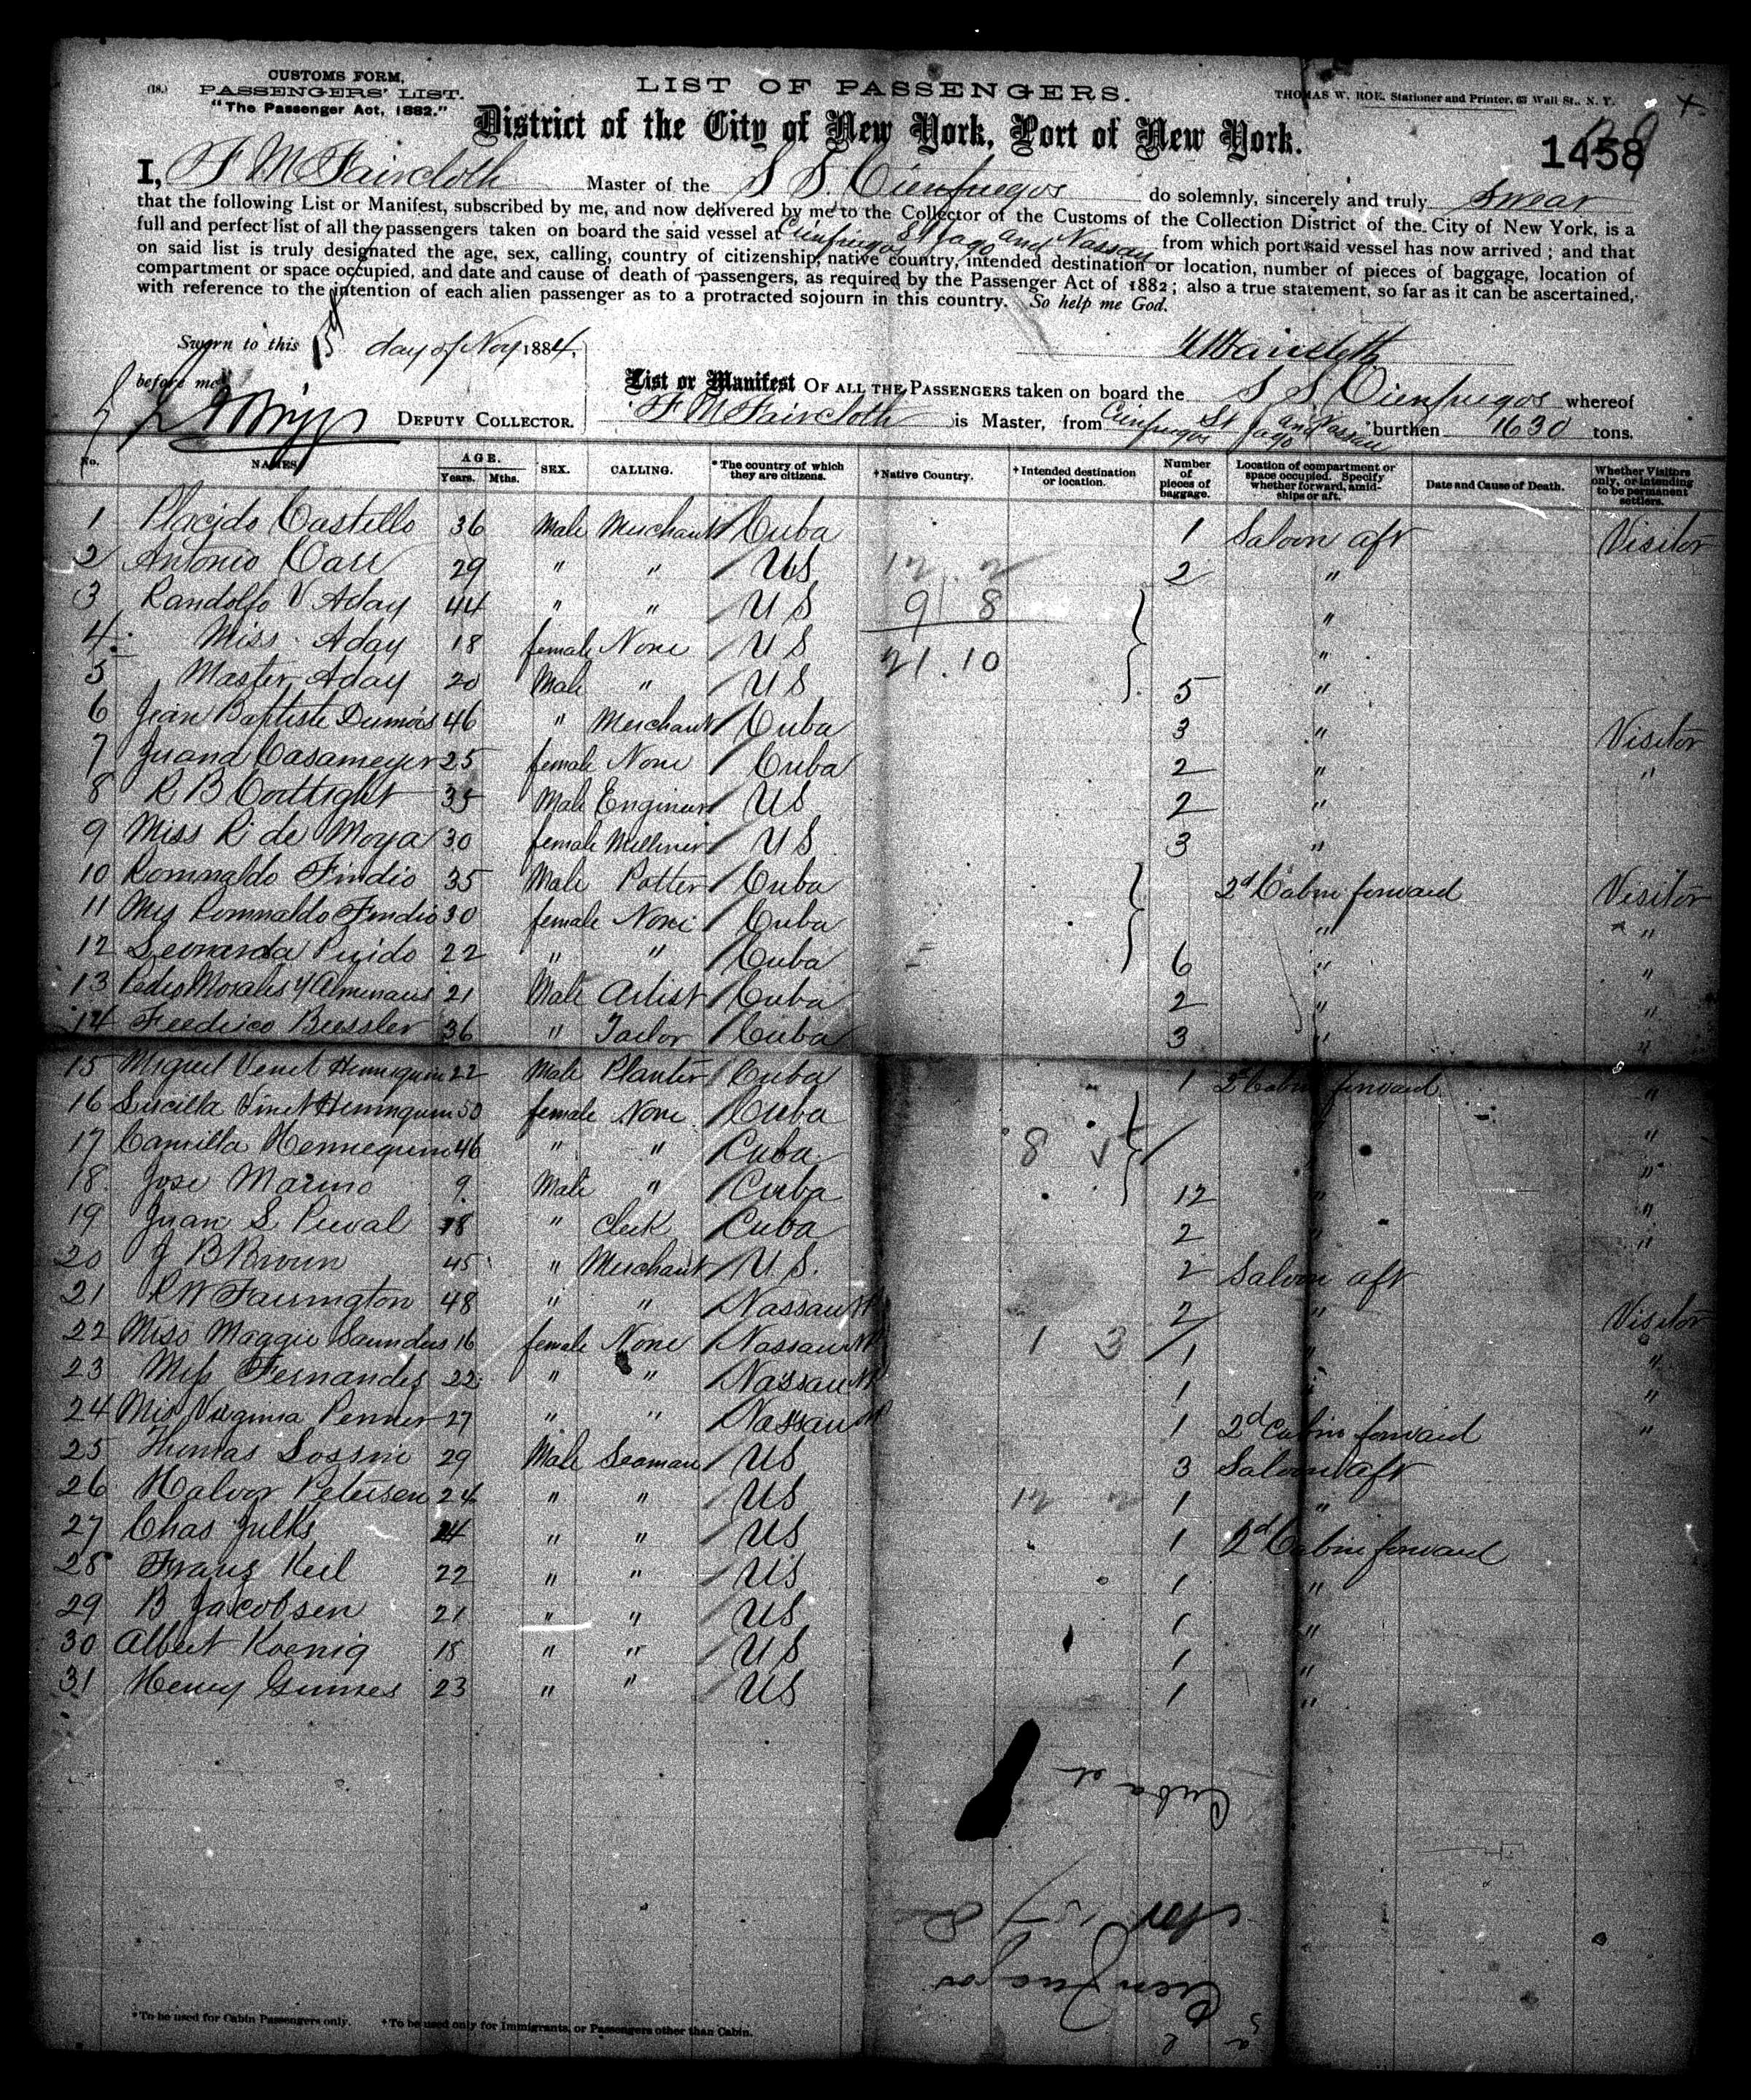 (18.) CUSTOMS FORM, PASSENGERS' LIST. "The Passenger Act, 1882."
LIST OF PASSENGERS.
THOMAS W. ROE, Stationer and Printer, 63 Wall St., N. Y.
District of the City of New York, Port of New York.
1458
I, F M Faircloth Master of the S S. Cienfuegos do solemnly, sincerely and truly swear
that the following List or Manifest, subscribed by me, and now delivered by me to the Collector of the Customs of the Collection District of the City of New York, is a
full and perfect list of all the passengers taken on board the said vessel at Cienfuegos St Jago and Nassau from which port said vessel has now arrived ; and that
on said list is truly designated the age, sex, calling, country of citizenship, native country, intended destination or location, number of pieces of baggage, location of
compartment or space occupied, and date and cause of death of passengers, as required by the Passenger Act of 1882 ; also a true statement, so far as it can be ascertained,
with reference to the intention of each alien passenger as to a protracted sojourn in this country. So help me God.
Sworn to this 15 day of Nov 1884,
F M Faircloth
before me
DEPUTY COLLECTOR.
List or Manifest OF ALL THE PASSENGERS taken on board the S S Cienfuegos whereof
F M Faircloth is Master, from Cienfuegos St Jago and Nassau burthen 1630 tons.
No. NAMES. AGE. Years. Mths. SEX. CALLING. *The country of which they are citizens. †Native Country. †Intended destination or location. Number of pieces of baggage. Location of compartment or space occupied. Specify whether forward, amidships or aft. Date and Cause of Death. Whether Visitors only, or intending to be permanent settlers.
1 Placido Castillo 36 Male Merchant Cuba 1 Saloon aft Visitor
2 Antonio Carr 29 " " US 12 2 2 "
3 Randolfo V Aday 44 " " US 9 8 "
4 Miss Aday 18 female None US 21.10 "
5 Master Aday 20 Male " US 5 "
6 Jean Baptiste Dumois 46 " Merchant Cuba 3 " Visitor
7 Juand Casameyer 25 female None Cuba 2 " "
8 R B Corttright 35 Male Engineer US 2 "
9 Miss R de Moya 30 female Milliner US 3 "
10 Romnaldo Findio 35 Male Potter Cuba 2d Cabin forward Visitor
11 Mrs Romnaldo Findio 30 female None Cuba " "
12 Leonarda Puido 22 " " Cuba 6 " "
13 Pedro Morales y Almenares 21 Male Artist Cuba 2 " "
14 Feedrico Bussler 36 " Tailor Cuba 3 " "
15 Miguel Venet Hennequin 22 Male Planter Cuba 1 2d Cabin forward "
16 Lucilla Vinet Hennequin 50 female None Cuba "
17 Camilla Hennequin 46 " " Cuba 8 "
18 Jose Marino 9 Male " Cuba 12 " "
19 Juan S. Puval 18 " Clerk Cuba 2 " "
20 J B Brown 45 " Merchant U. S. 2 Saloon aft
21 R W Farrington 48 " " Nassau NP 2 " Visitor
22 Miss Maggie Saunders 16 female None Nassau NP 1 3 1 " "
23 Miss Fernandes 22 " " Nassau NP 1 "
24 Mrs Virginia Penner 27 " " Nassau NP 1 2d Cabin forward "
25 Thomas Lossin 29 Male Seaman US 3 Saloon aft
26 Halvor Petersen 24 " " US 12 2 1 "
27 Chas Julks 24 " " US 1 2d Cabin forward
28 Franz Keil 22 " " US 1 "
29 B Jacobsen 21 " " US 1 "
30 Albert Koenig 18 " " US 1 "
31 Henry Grimes 23 " " US 1 "
Cuba et
Nov 15/
Cienfuegos
*To be used for Cabin Passengers only. †To be used only for Immigrants, or Passengers other than Cabin.